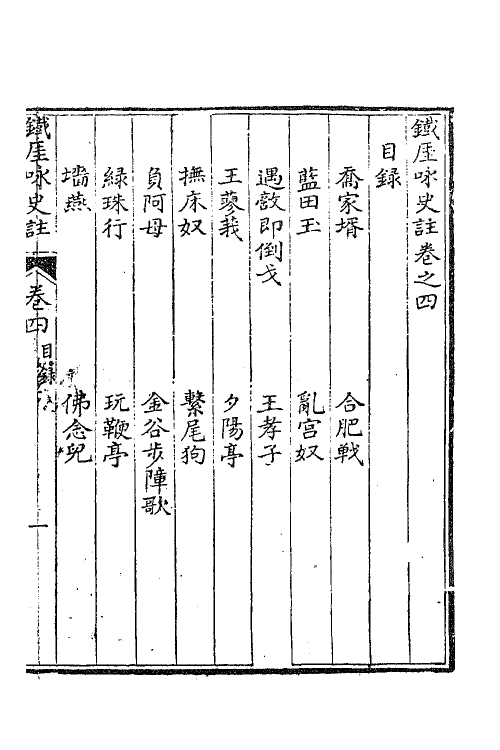 鐵厓咏史註卷之四
目録
喬家壻　合肥戰
藍田玉　亂宫奴
遇敵即倒戈　王孝子
王蓼莪　夕陽亭
撫床奴　繫尾狗
負阿母　金谷步障歌
緑珠行　玩鞭亭
墻燕　佛念兒
鐵厓咏史註　卷四　目録　一